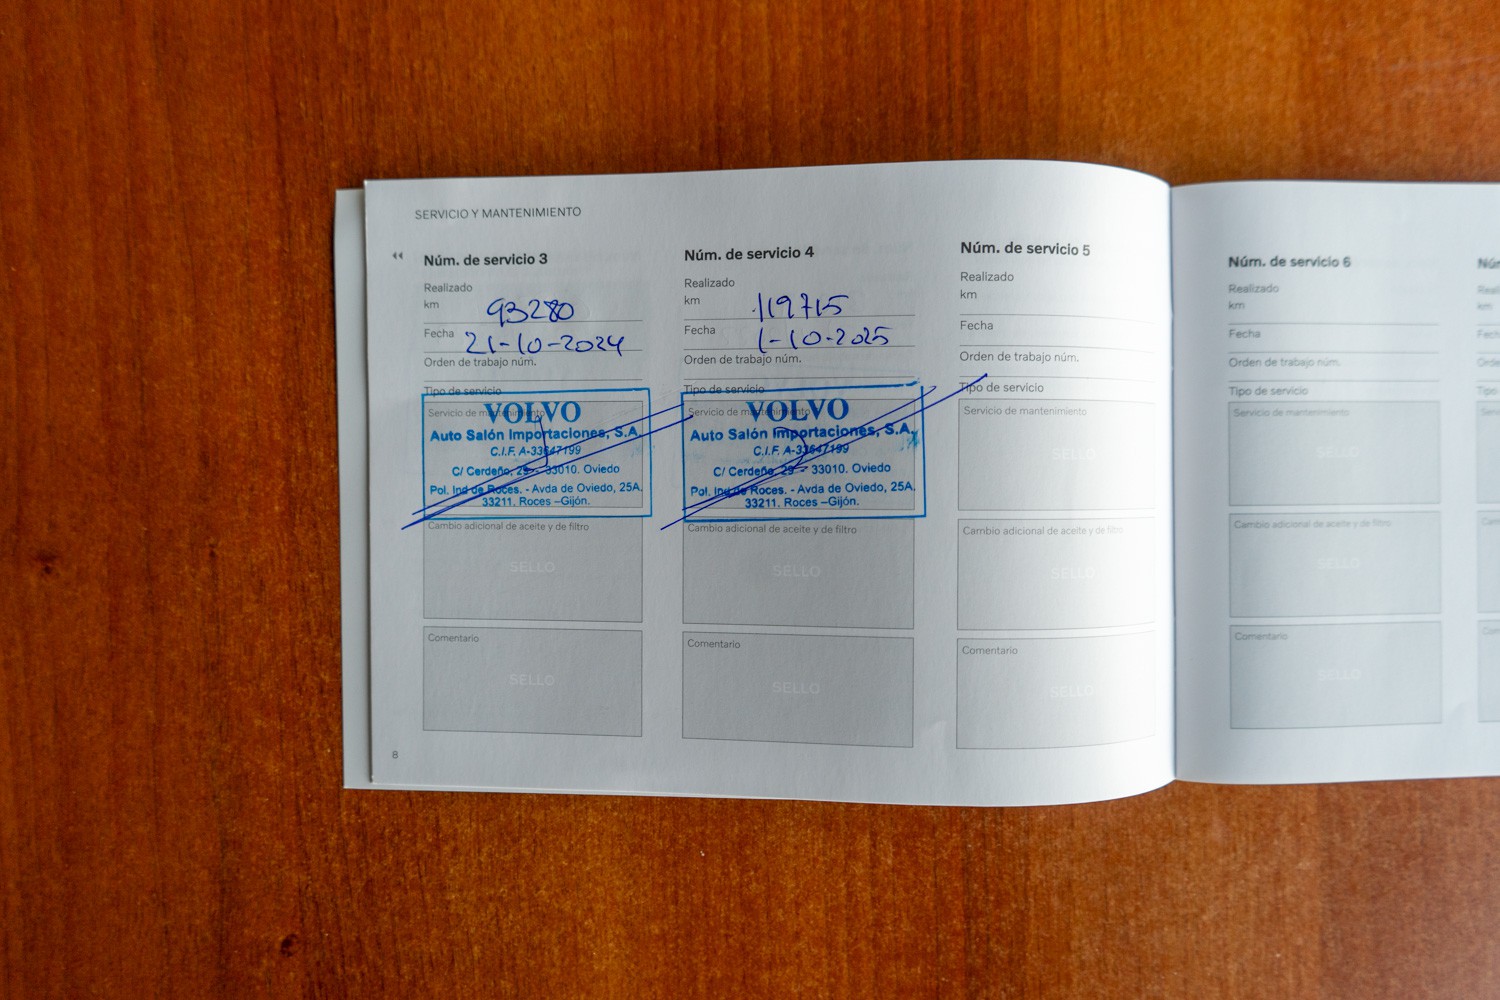 SERVICIO Y MANTENIMIENTO
Núm. de servicio 3
Realizado
km 93280
Fecha 21-10-2024
Orden de trabajo núm.
Tipo de servicio
Servicio de mantenimiento
VOLVO
Auto Salón Importaciones, S.A.
C.I.F. A-33647199
C/ Cerdeño, 29 - 33010. Oviedo
Pol. Ind de Roces. - Avda de Oviedo, 25A.
33211. Roces –Gijón.
Cambio adicional de aceite y de filtro
SELLO
Comentario
SELLO
8
Núm. de servicio 4
Realizado
km 119715
Fecha 1-10-2025
Orden de trabajo núm.
Tipo de servicio
Servicio de mantenimiento
VOLVO
Auto Salón Importaciones, S.A.
C.I.F. A-33647199
C/ Cerdeño, 29 - 33010. Oviedo
Pol. Ind de Roces. - Avda de Oviedo, 25A.
33211. Roces –Gijón.
Cambio adicional de aceite y de filtro
SELLO
Comentario
SELLO
Núm. de servicio 5
Realizado
km
Fecha
Orden de trabajo núm.
Tipo de servicio
Servicio de mantenimiento
SELLO
Cambio adicional de aceite y de filtro
SELLO
Comentario
SELLO
Núm. de servicio 6
Realizado
km
Fecha
Orden de trabajo núm.
Tipo de servicio
Servicio de mantenimiento
SELLO
Cambio adicional de aceite y de filtro
SELLO
Comentario
SELLO